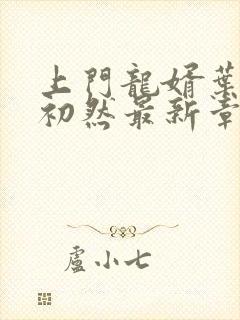 上門龍婿葉
初然最新章
盧小七